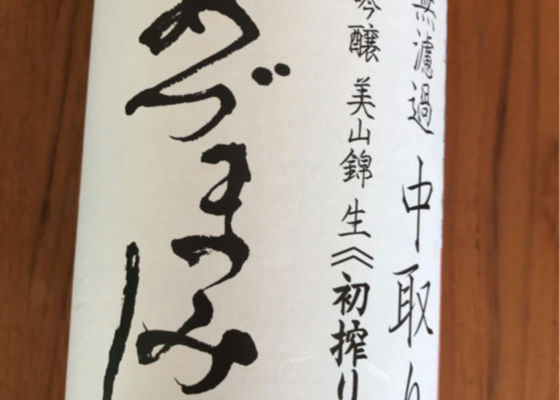 無濾過 中取り
吟醸 美山錦 生《初搾り
あづまみ